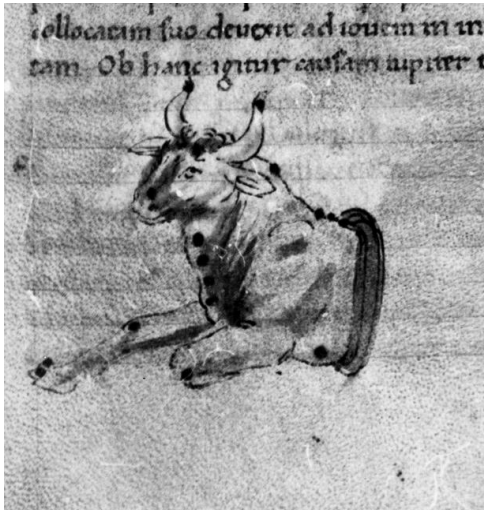 collocatam suo deuexit ad iouem in in
tam. Ob hanc igitur causam iupiter t